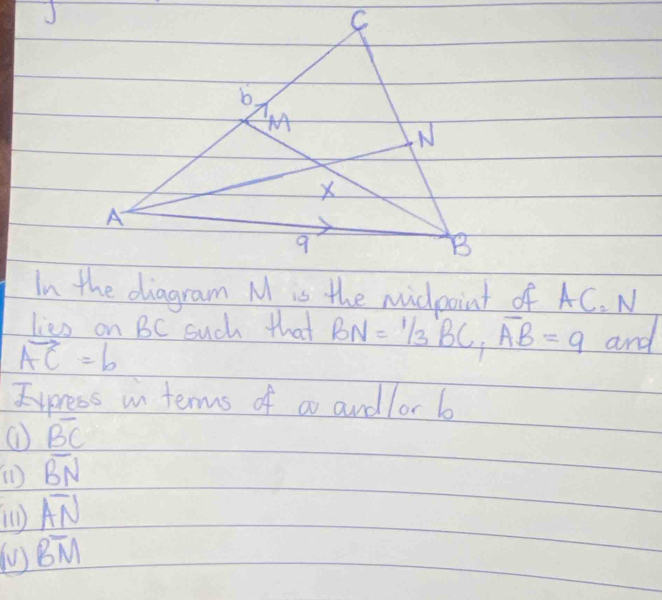 C
b
M
N
X
A
a
B
In the diagram M is the midpoint of AC. N
lies on BC such that BN = 1/3 BC, AB = a and
AC = b
Express in terms of a and/or b
(i) BC
(ii) BN
(iii) AN
(iv) BM